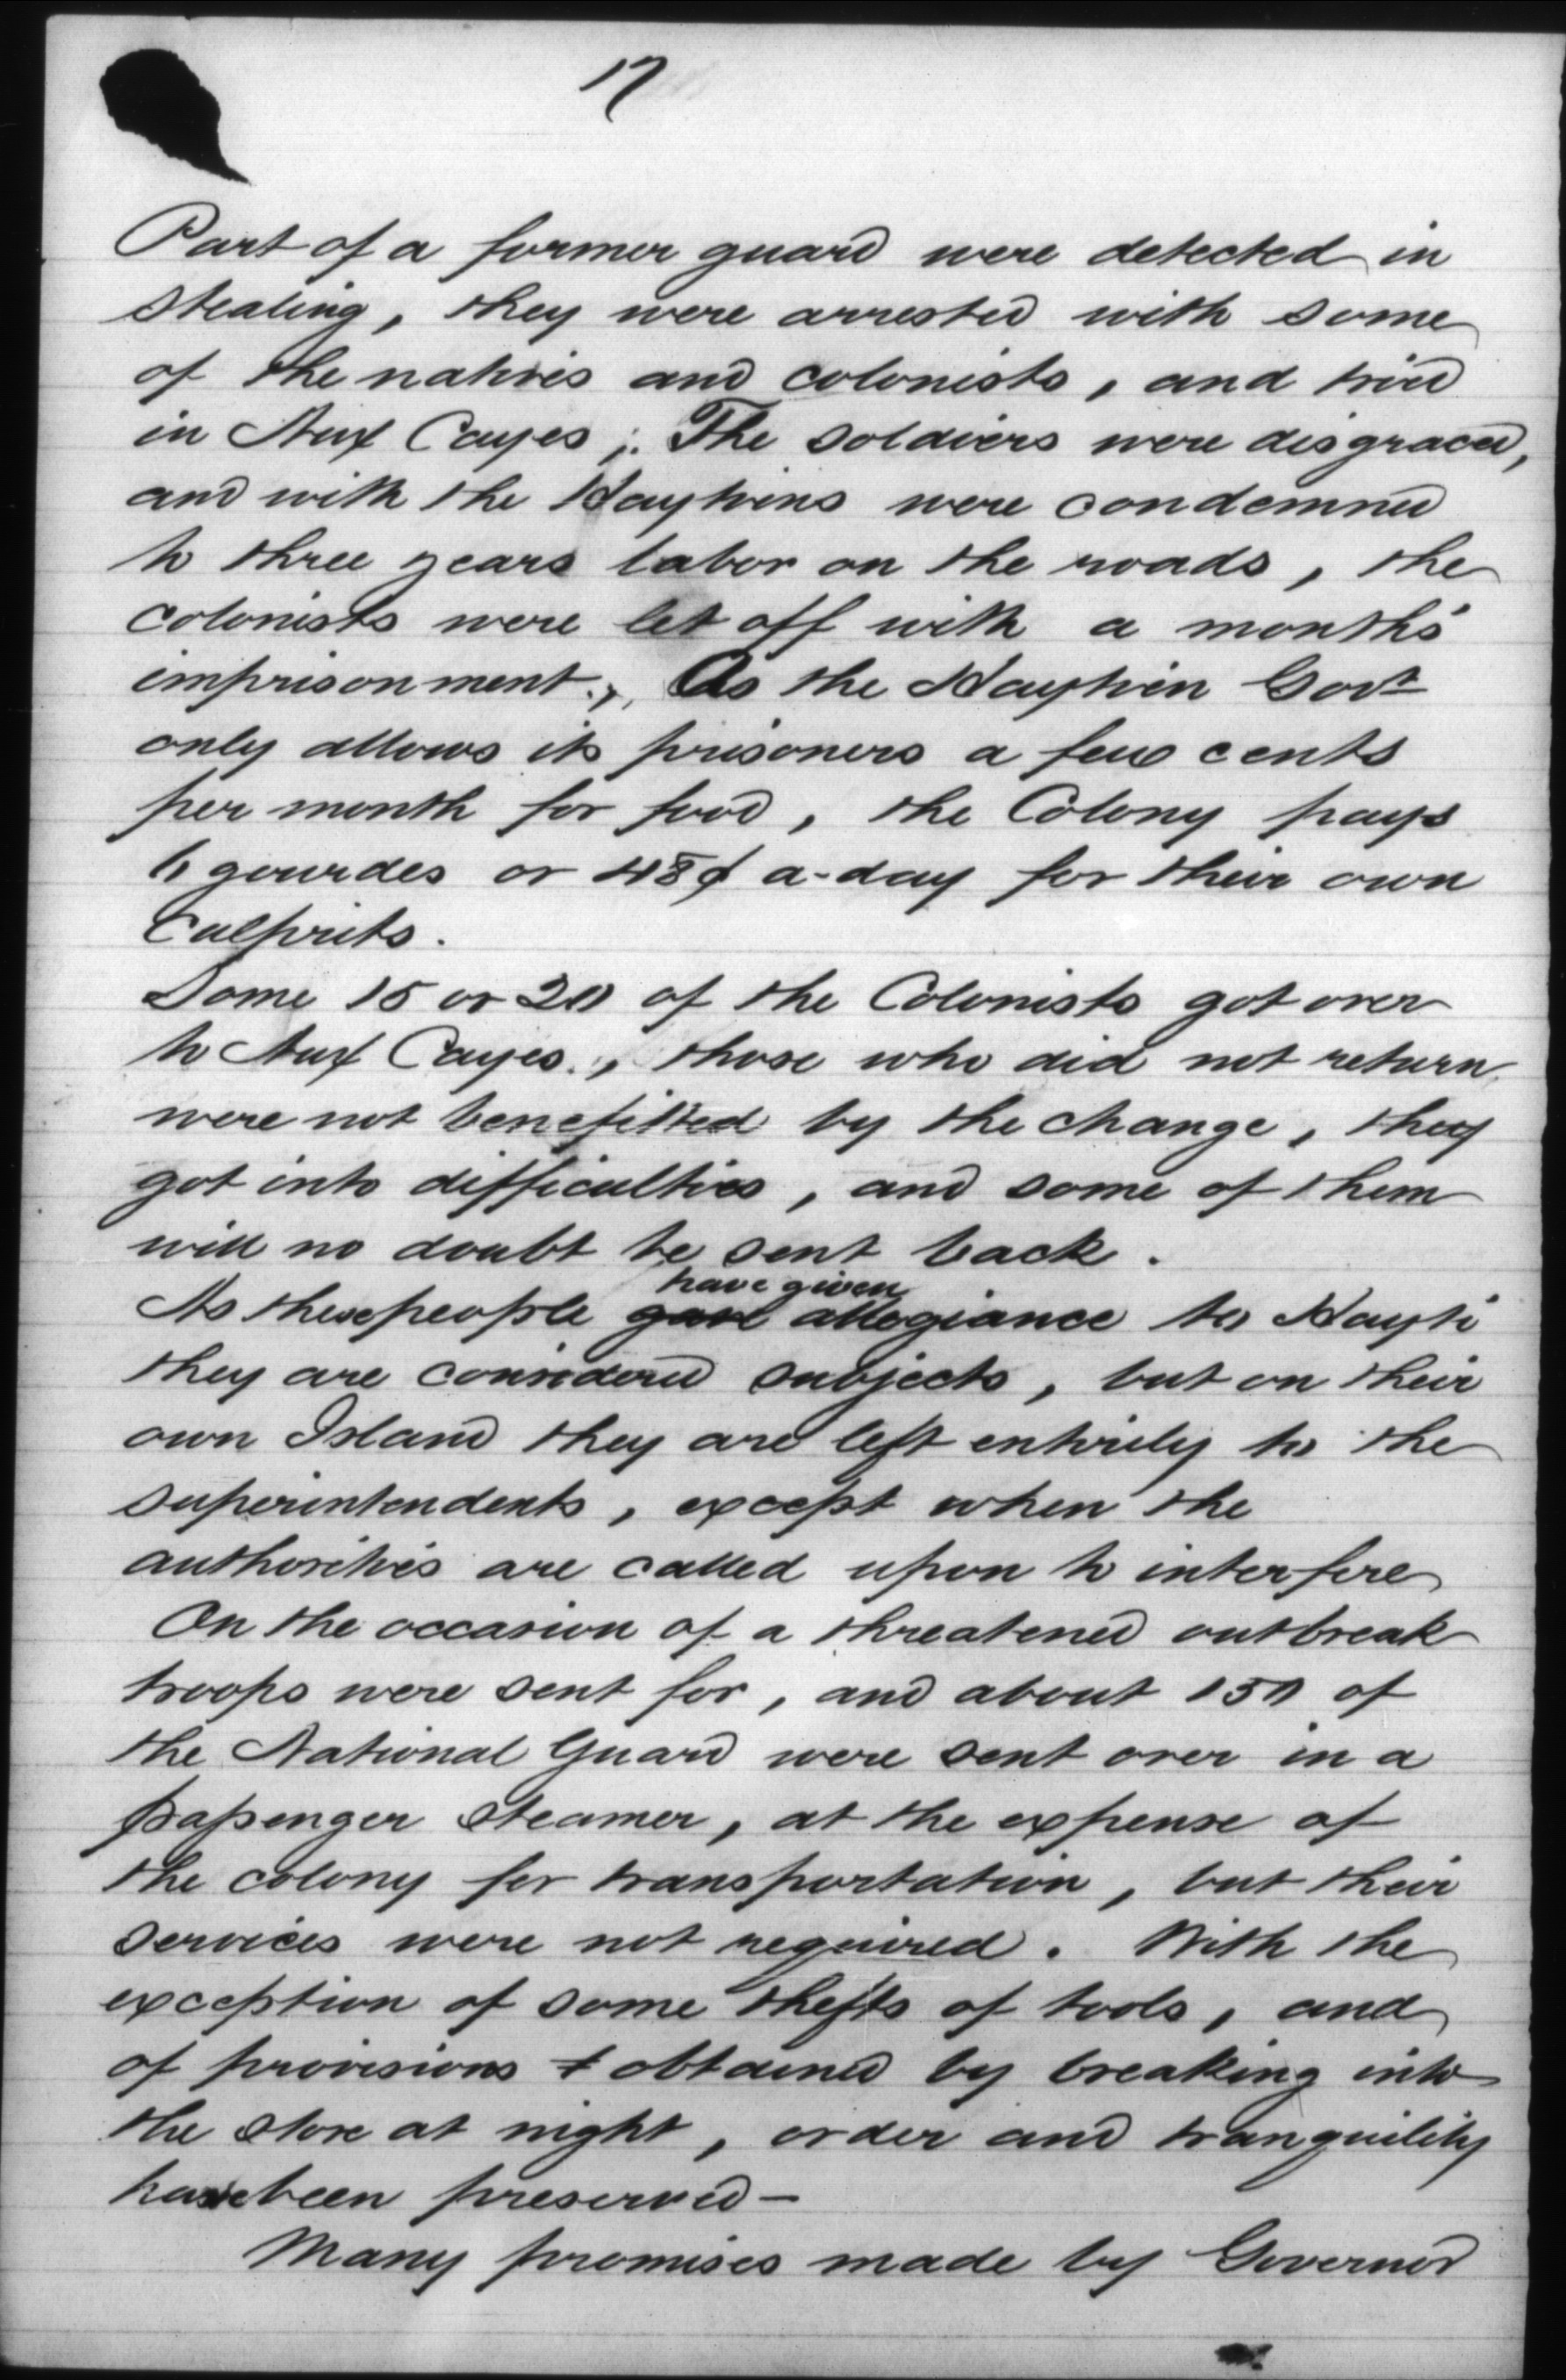 17
Part of a former guard were detected in
stealing, they were arrested with some
of the natives and colonists, and tried
in Aux Cayes; The soldiers were disgraced,
and with the Haytiens were condemned
to three years labor on the roads, the
colonists were let off with a month's
imprisonment., As the Haytien Govt
only allows its prisoners a few cents
per month for food, the Colony pays
6 gourdes or 48¢ a-day for their own
culprits.
Some 15 or 20 of the Colonists got over
to Aux Cayes., those who did not return
were not benefitted by the change, they
got into difficulties, and some of them
will no doubt be sent back.
have given
As these people gave allegiance to Hayti
they are considered subjects, but on their
own Island they are left entirely to the
superintendents, except when the
authorities are called upon to interfere
On the occasion of a threatened outbreak
troops were sent for, and about 150 of
the National Guard were sent over in a
passenger steamer, at the expense of
the colony for transportation, but their
services were not required. With the
exception of some thefts of tools, and
of provisions obtained by breaking into
the store at night, order and tranquility
have been preserved—
Many promises made by Governor